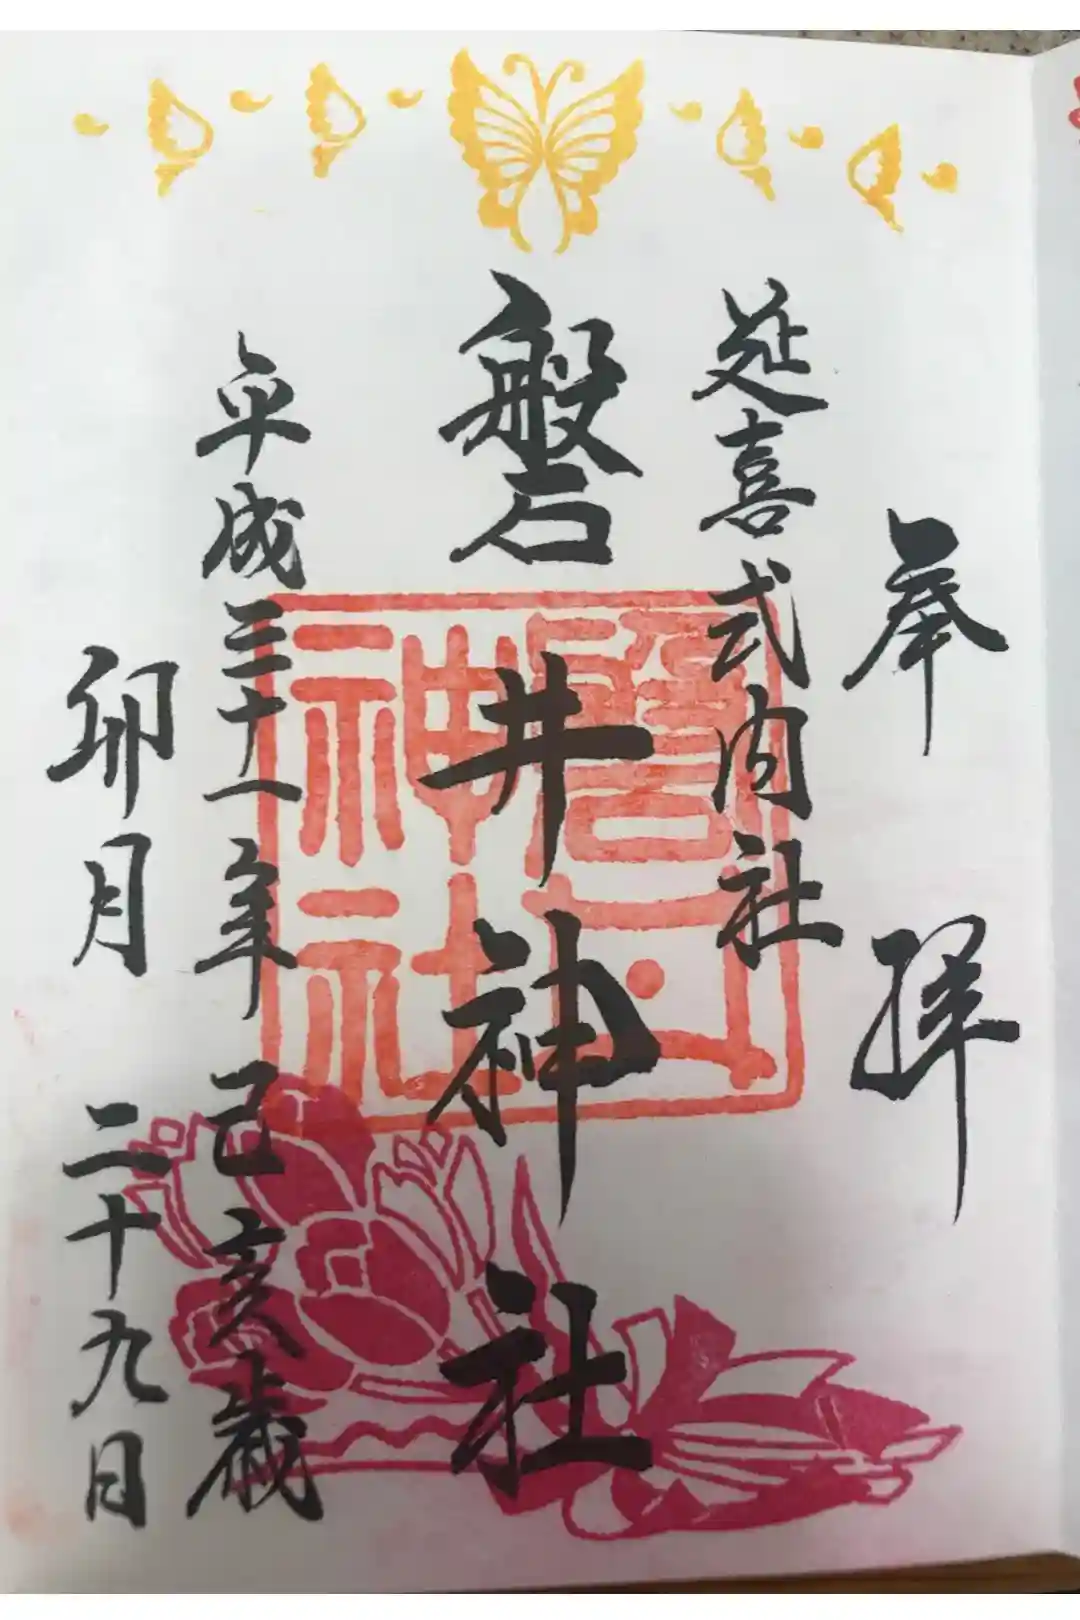 奉拝
延喜式内社
磐井神社
平成三十一年己亥歳
卯月二十九日
磐井神社